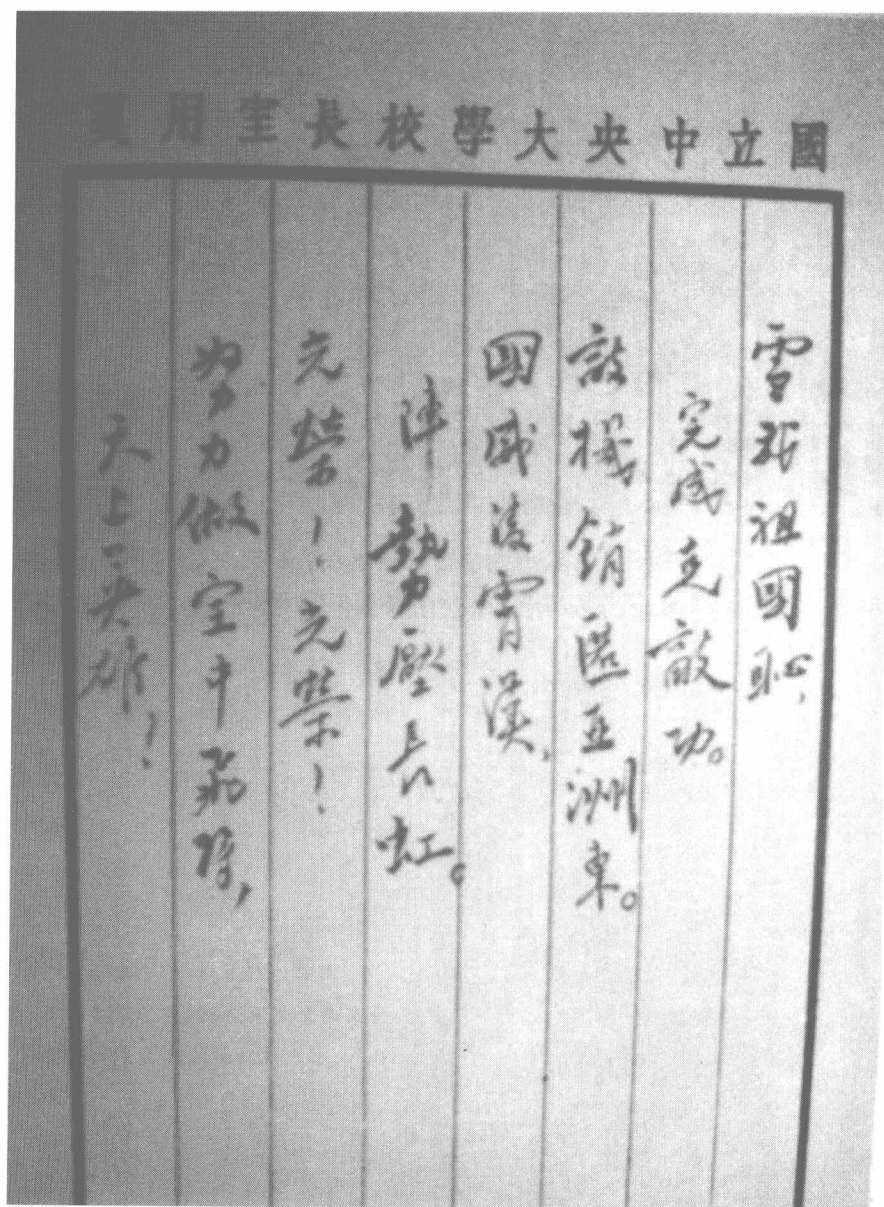 國立中央大學校長室用箋
雪我祖國恥，
完成克敵功。
敵機銷匿亞洲東。
國威凌霄漢，
陣勢壓長虹。
光榮！光榮！
努力做空中飛將，
天上英雄！